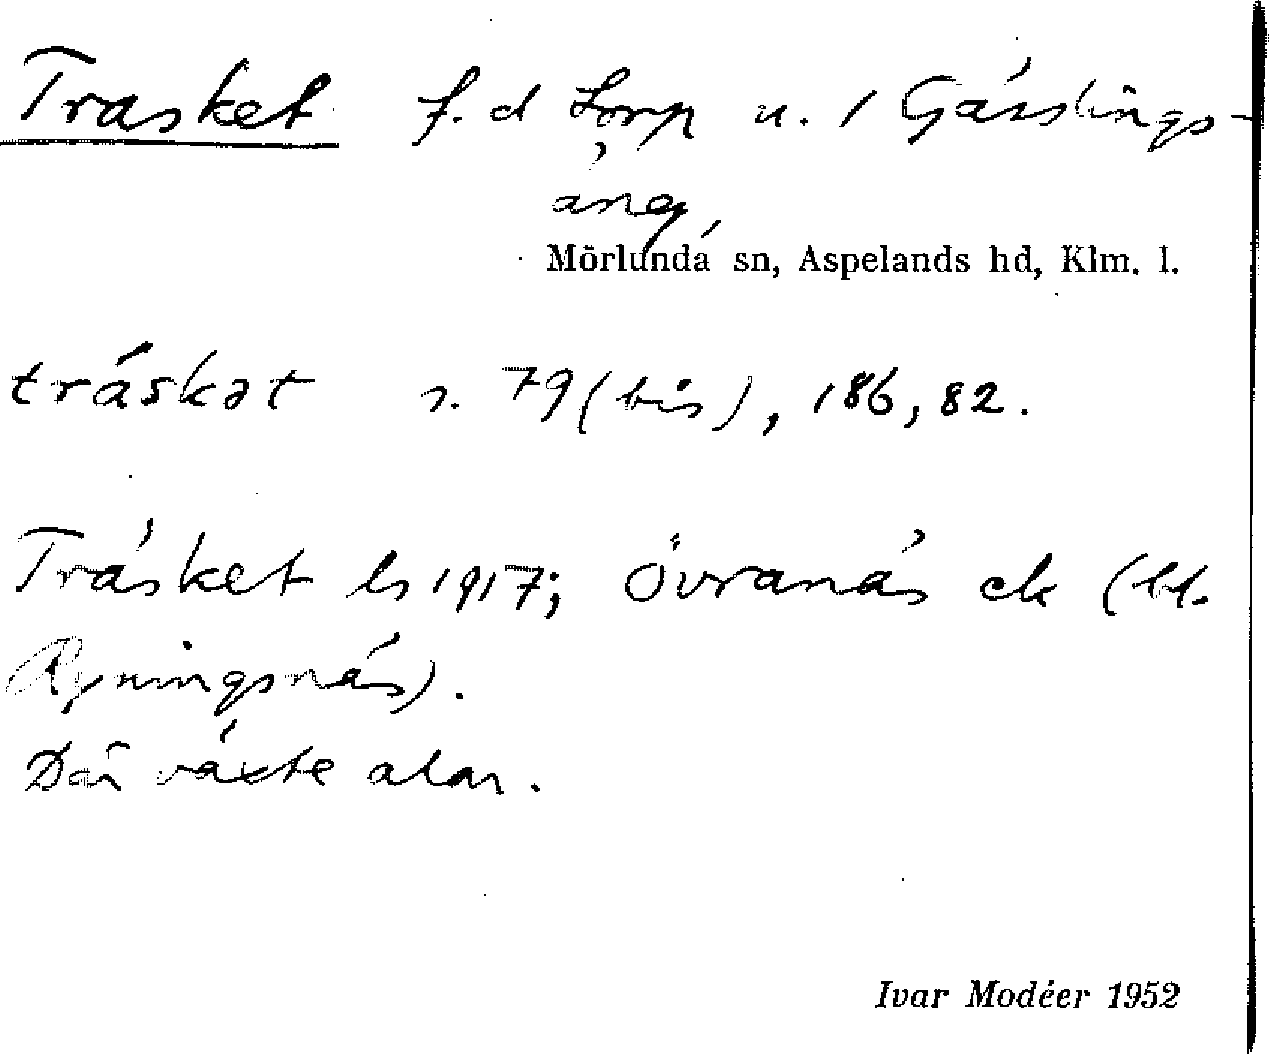 Träsket f. d torp u. 1 Gässlings-
äng,
Mörlunda sn, Aspelands hd, Klm. l.
träskət s. 79 (bis), 186, 82.
Träsket ls 1917; Övranäs ek (bl.
Ryningsnäs).
Där växte alar.
Ivar Modéer 1952